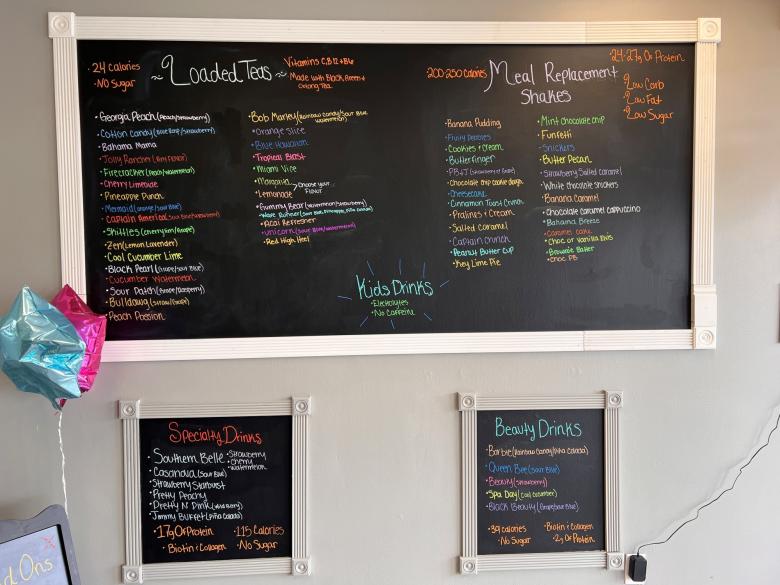 •24 calories
•No Sugar
~Loaded Teas~
Vitamins C, B12 + B6
Made with Black, Green +
Oolong Tea
•Georgia Peach (Peach/Strawberry)
•Cotton Candy (Blue Rasp/Strawberry)
•Bahama Mama
•Jolly Rancher (Any Flavor)
•Firecracker (Peach/Watermelon)
•Cherry Limeade
•Pineapple Punch
•Mermaid (orange/Sour Blue)
•Captain America (Sour Blue/Strawberry)
•Skittles (Cherry/Lim/Grape)
•Zen (Lemon Lavender)
•Cool Cucumber Lime
•Black Pearl (Grape/Sour Blue)
•Cucumber Watermelon
•Sour Patch (Grape/Raspberry)
•Bulldawg (Straw/Grape)
•Peach Passion
•Bob Marley (Rainbow Candy/Sour Blue
watermelon)
•Orange Slice
•Blue Hawaiian
•Tropical Blast
•Miami Vice
•Margarita
•Lemonade
Choose your
Flavor
•Gummy Bear (Watermelon/Strawberry)
•Wave Runner (Sour Blue, Pineapple, Piña Colada)
•Acai Refresher
•Unicorn (Sour Blue/Watermelon)
•Red High Heel
Kids Drinks
•Electrolytes
•No Caffeine
200-250 calories
Meal Replacement
Shakes
24-27g Of Protein
Low Carb
Low Fat
Low Sugar
•Banana Pudding
•Fruity Pebbles
•Cookies + Cream
•Butterfinger
•PB+J (Strawberry or Grape)
•Chocolate chip cookie dough
•Cheesecake
•Cinnamon Toast Crunch
•Pralines + Cream
•Salted Caramel
•Captain Crunch
•Peanut Butter Cup
•Key Lime Pie
•Mint Chocolate chip
•Funfetti
•Snickers
•Butter Pecan
•Strawberry Salted Caramel
•White Chocolate Snickers
•Banana Caramel
•Chocolate Caramel Cappuccino
•Bahama Breeze
•Caramel Cake
•Choc or Vanilla Elvis
•Brownie Batter
•Choc PB
Specialty Drinks
•Southern Belle
•Strawberry
•Cherry
•Watermelon
•Casanova (Sour Blue)
•Strawberry Starburst
•Pretty Peachy
•Pretty N' Pink
•Jimmy Buffet (Piña Colada)
•17g Of Protein
•115 Calories
•Biotin + Collagen
•No Sugar
Beauty Drinks
•Barbie (Rainbow Candy/Piña Colada)
•Queen Bee (Sour Blue)
•Beauty (Strawberry)
•Spa Day (Cool Cucumber)
•Black Beauty (Grape/Sour Blue)
•39 calories
•Biotin + Collagen
•No Sugar
•2g Of Protein
Ons